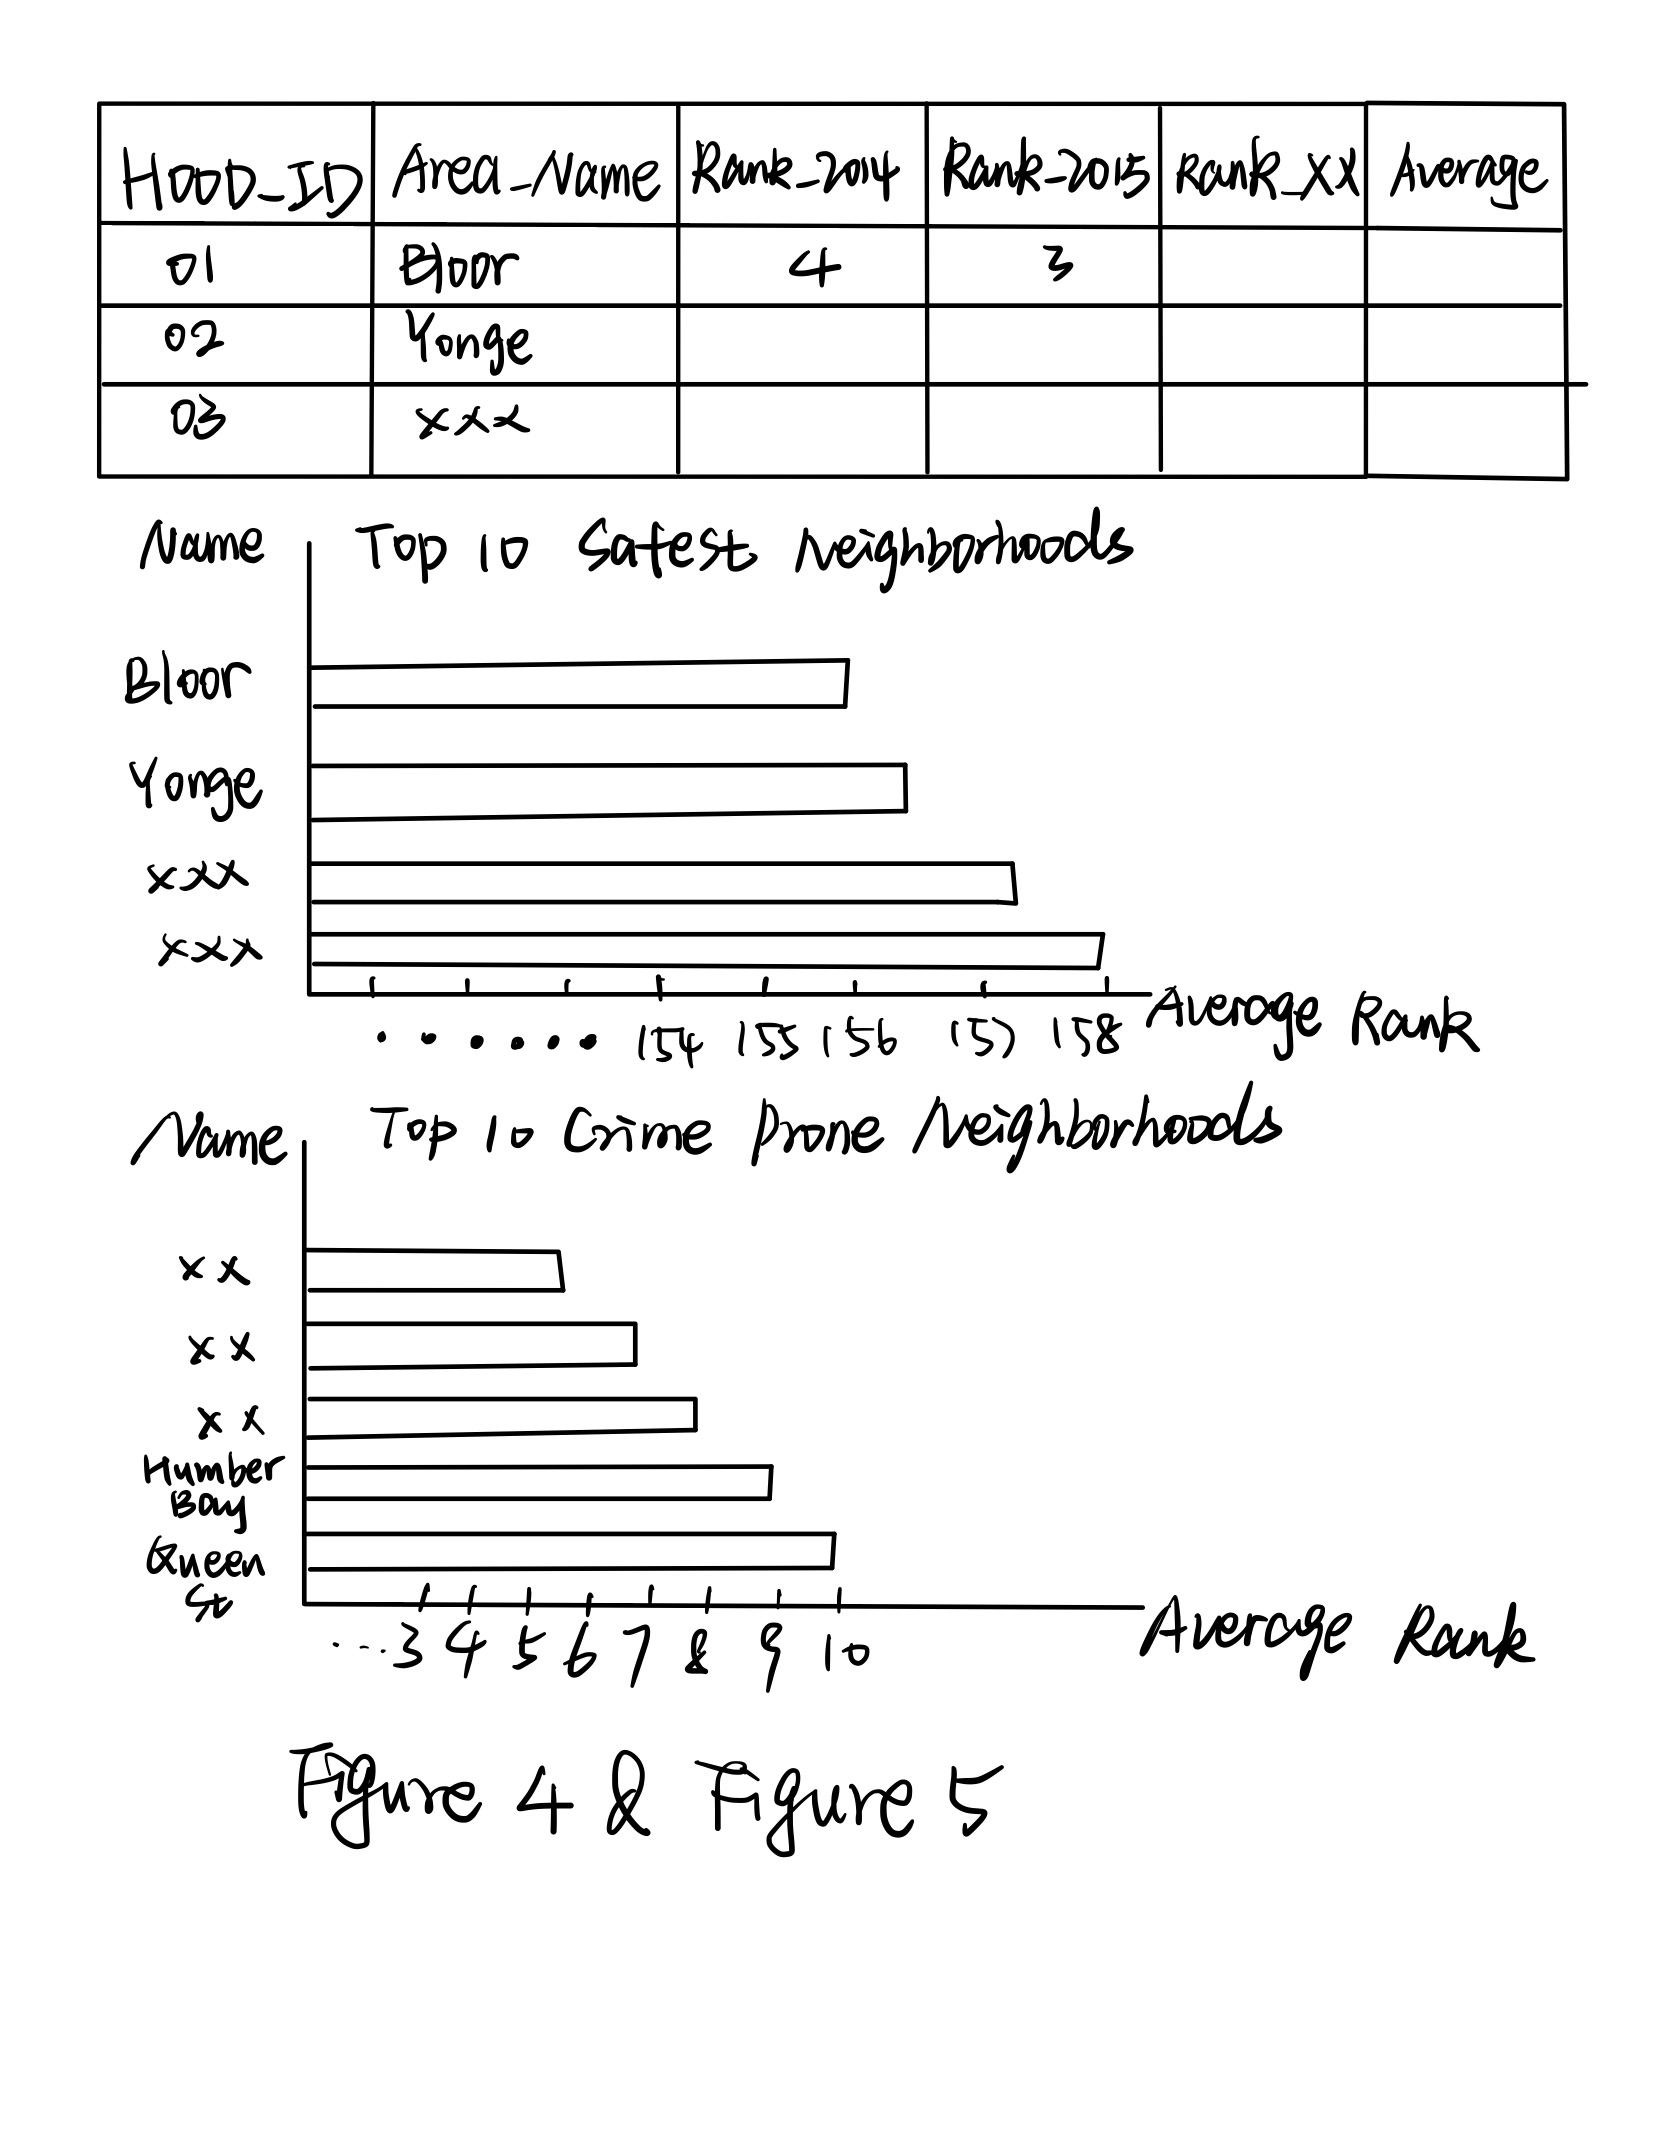 HOOD_ID Area_Name Rank_2014 Rank_2015 Rank_XX Average
01 Bloor 4 3
02 Yonge
03 xxx
Name Top 10 Safest Neighborhoods
Bloor
Yonge
xxx
xxx
. . . . . 154 155 156 157 158 Average Rank
Name Top 10 Crime Prone Neighborhoods
xx
xx
xx
Humber
Bay
Queen
St
... 3 4 5 6 7 8 9 10 Average Rank
Figure 4 & Figure 5